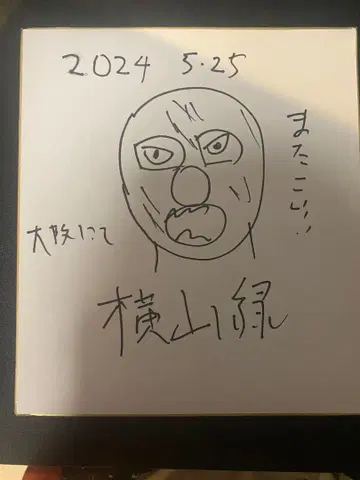 2024 5.25
またこい!!
大阪にて
横山緑